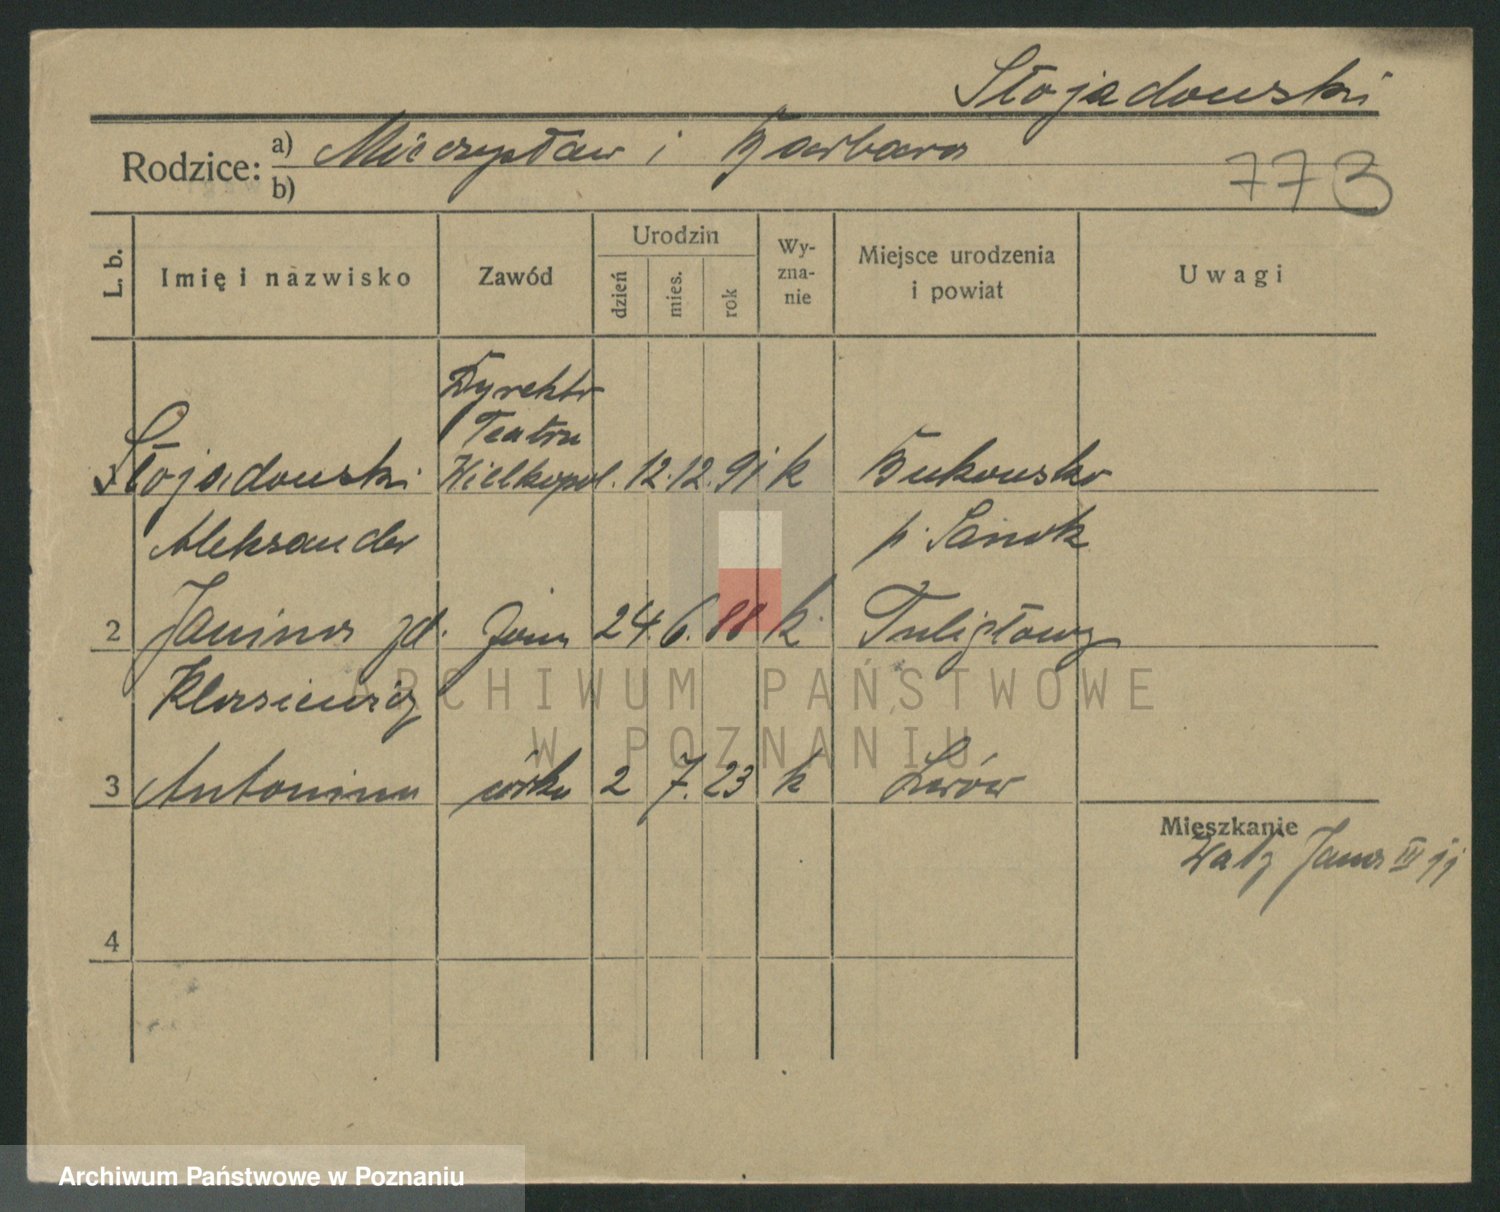 Słojadowski
Rodzice: a) Mieczysław i Barbara
b)
773
L. b. Imię i nazwisko Zawód Urodzin dzień mies. rok Wy-zna-nie Miejsce urodzenia i powiat Uwagi
Dyrektr
Teatru
1 Słojadowski Wielkopol. 12. 12. 91 k Bukowsko
Aleksander p. Sanok
2 Janina zd. żona 24. 6. 88 k. Tuligłowy
3 Antonina córka 2 7. 23 k Lwów
Mieszkanie
Wały Jana III
4
ARCHIWUM PAŃSTWOWE
W POZNANIU
Archiwum Państwowe w Poznaniu